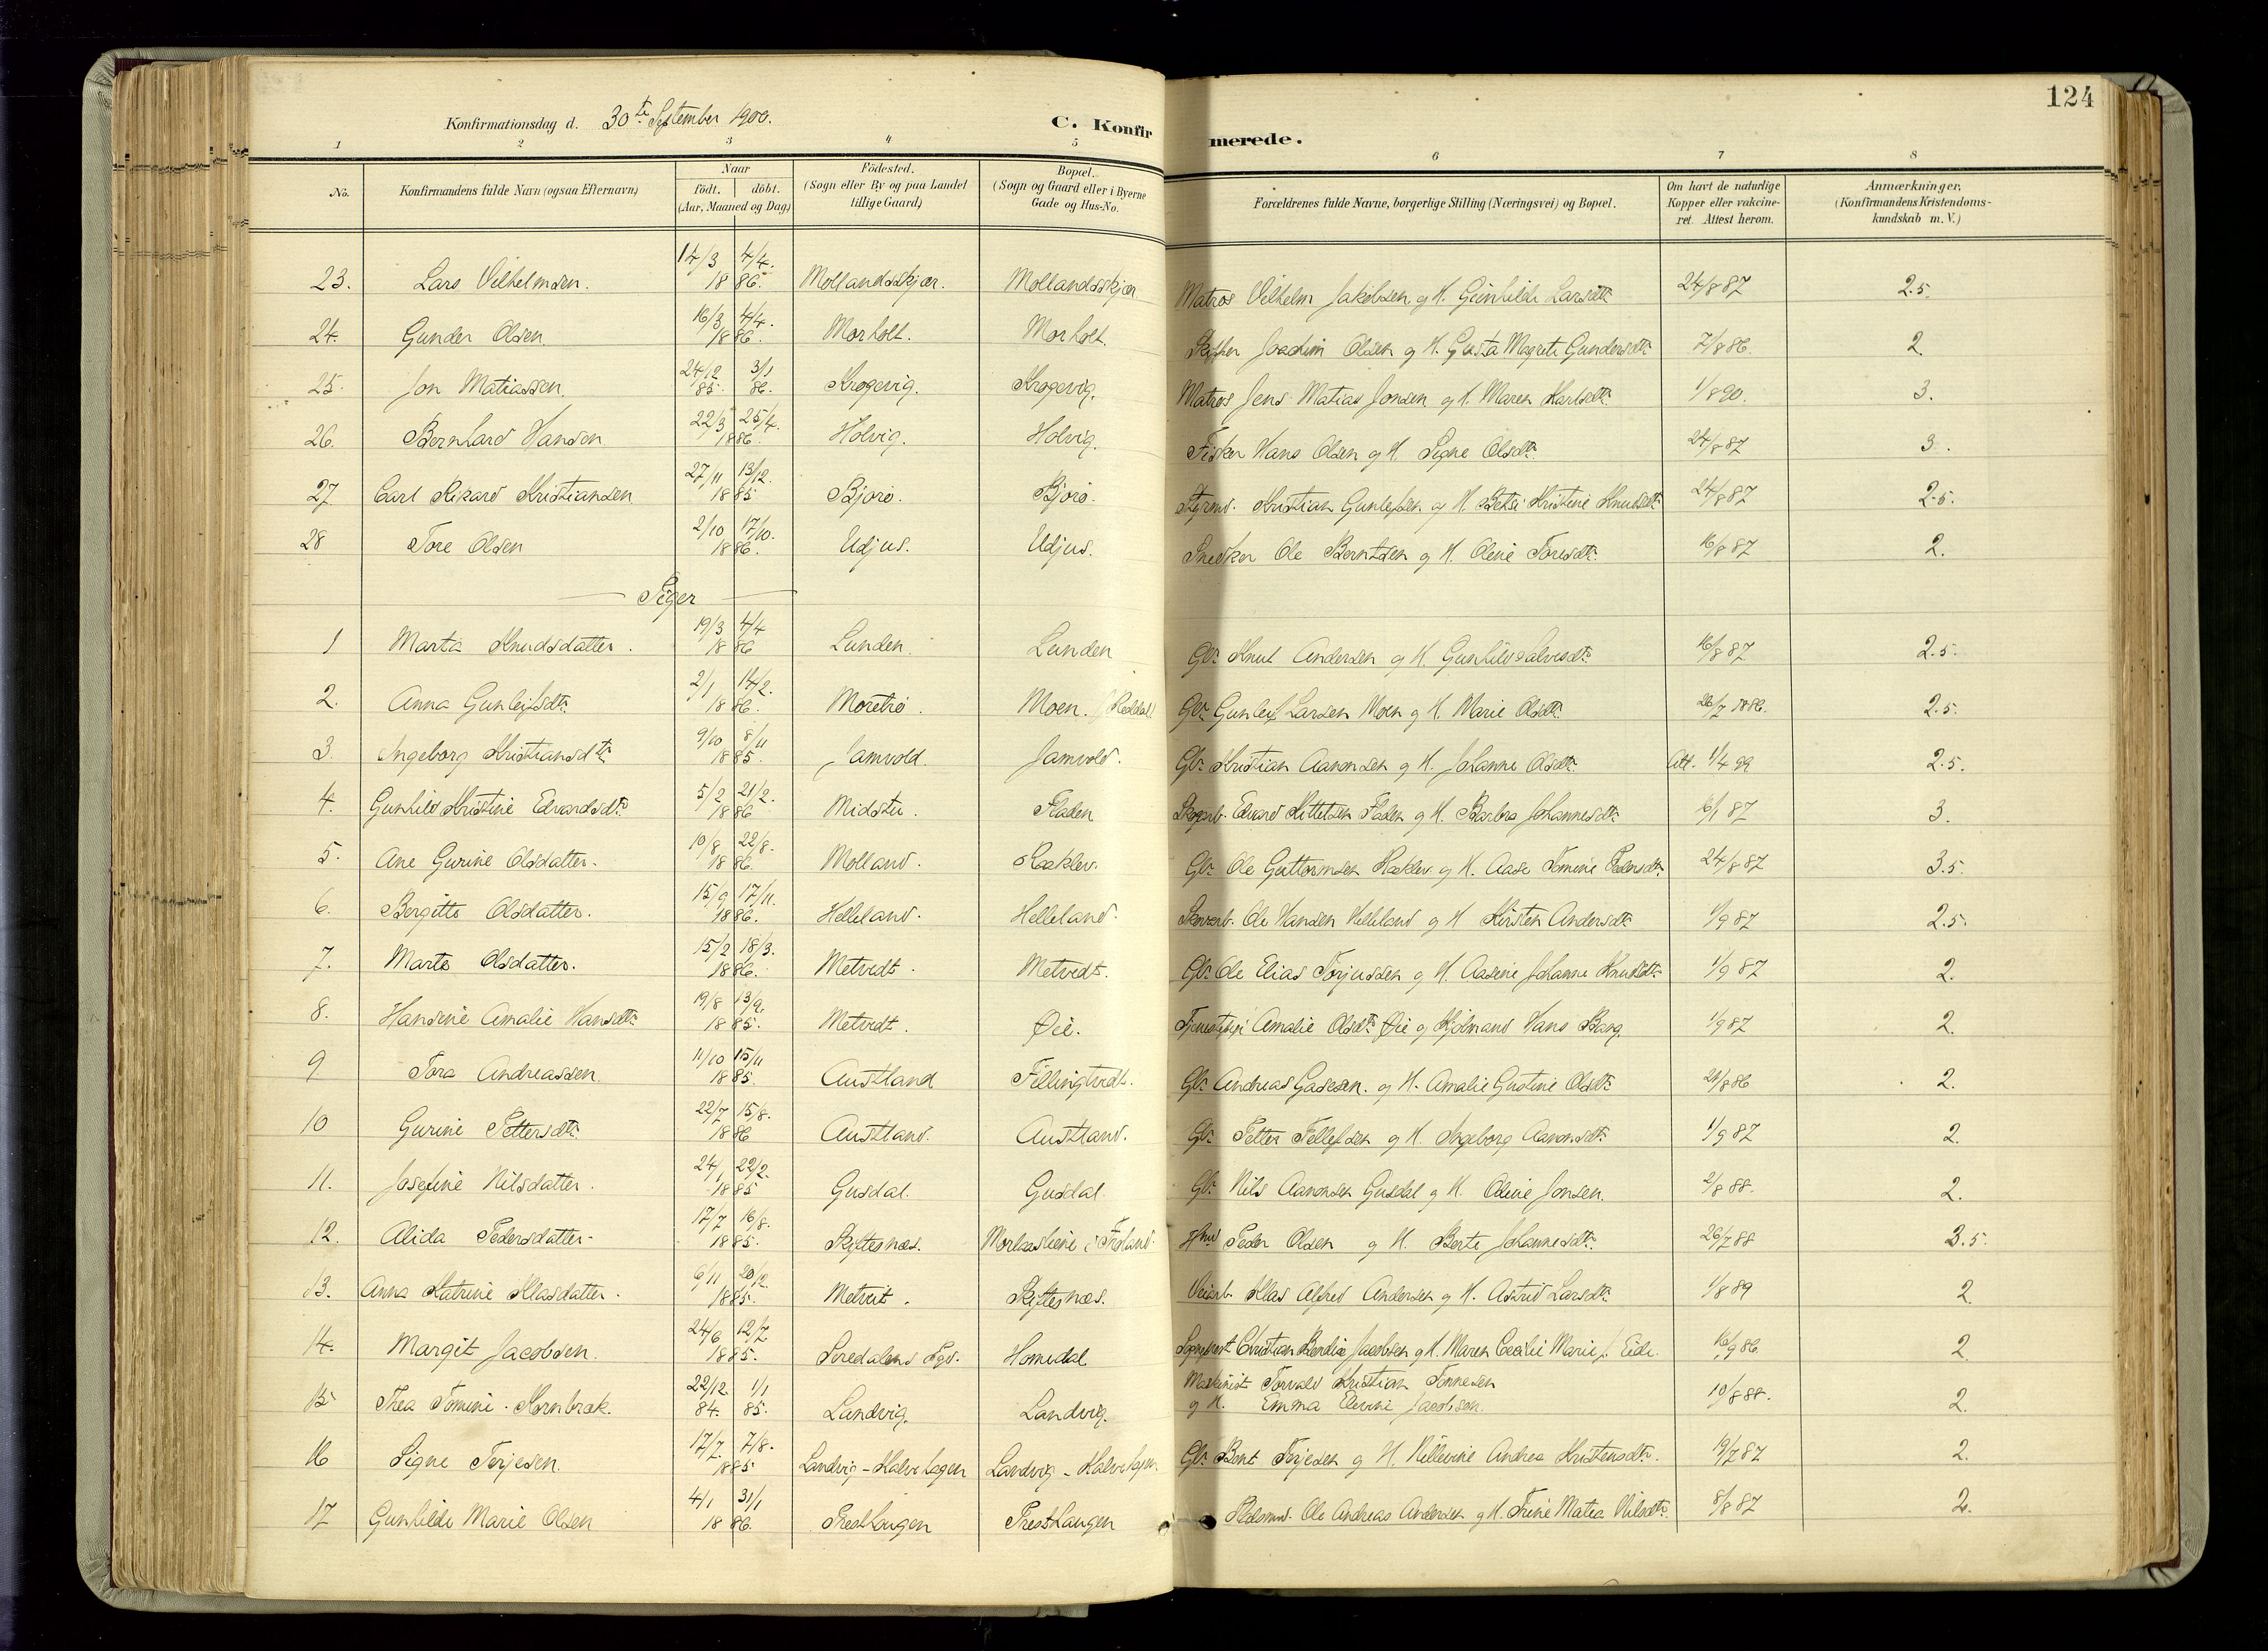 124
Konfirmationsdag d. 30te September 1900.
C. Konfirmerede.
1 2 3 4 5 6 7 8
No. Konfirmandens fulde Navn (ogsaa Efternavn) Naar födt. döbt. (Aar, Maaned og Dag) Födested. (Sogn eller By og paa Landet tillige Gaard) Bopæl. (Sogn og Gaard eller i Byerne Gade og Hus-No. Forældrenes fulde Navne, borgerlige Stilling (Næringsvei) og Bopæl. Om havt de naturlige Kopper eller vakcineret. Attest herom. Anmærkninger, (Konfirmandens Kristendomskundskab m. V.)
23. Lars Vilhelmsen. 14/3 4/4. 1886. Mollandsskjær. Mollandsskjær Matros Vilhelm Jakobsen og H. Gunhilde Larsdtr 24/8 87 2.5.
24. Gunder Olsen. 16/3 4/4. 1886. Morholt. Morholt. Skipper Joachim Olsen og H. Gusta Magrete Gundersdtr 7/8 86. 2.
25. Jon Matiassen. 24/12 85. 3/1 86. Krogevig. Krogevig. Matros Jens Matias Jonsen og H. Maren Karlsdtr. 1/8 90. 3.
26. Bernhard Hansen 22/3 25/4. 1886. Holvig. Holvig. Fisker Hans Olsen og H. Signe Olsdtr. 24/8 87 3.
27. Carl Rikard Kristiansen 27/11 13/12. 1885 Bjorö. Bjorö. Styrmd. Kristian Gunleifsen og H. Betsi Kristine Knutsdtr 24/8 87 2.5.
28 Tore Olsen 2/10 17/10. 1886. Udjus. Udjus. Snedker Ole Berntsen og H. Oline Toresdtr. 16/8 87 2.
Piger
1 Marta Knudsdatter. 19/3 4/4 1886 Lunden. Lunden Gbr. Knut Andersen og H. Gunhild Salvesdtr 16/8 87 2.5.
2. Anna Gunleifsdtr. 2/1 14/2. 1886. Moretrö. Moen. Gbr Gunleif Larsen Moen og H. Marie Olsdtr. 26/7 1886. 2.5.
3. Ingeborg Kristiansdtr 9/10 8/11 1885. Jamvold. Jamvold. Gbr. Kristian Aanonsen og H. Johanne Olsdtr. Att. 1/4 99 2.5.
4. Gunhild Kristine Edvardsdtr. 5/2 21/2. 1886 Midstu. Fladen Skogarb. Edvard Kittelsen Fladen og H. Barbra Johannesdtr 16/1 87 3.
5. Ane Gurine Olsdatter. 10/8 22/8. 1886. Molland. Ræklev. Gbr. Ole Guttormsen Ræklev og H. Aase Tomine Pedersdtr. 24/8 87 3.5.
6. Bergitte Olsdatter. 15/9 17/11. 1886. Helleland. Helleland. Ole Hansen Helleland og H Kirsten Andersdtr 1/9 87 2.5.
7. Marte Olsdatter. 15/2 18/3. 1886. Metvedt. Metvedt. Gbr. Ole Elias Torjussen og H. Aasine Johanne Knutsdtr. 1/9 87 2.
8. Hansine Amalie Hansdtr 19/8 13/9. 1885. Metvedt. Øie. Tjenestepi Amalie Olsdtr Øie og Hans Bang. 1/9 87 2.
9 Tora Andreassen. 11/10 15/11 1885. Austland Fillingtvedt. Gbr Andreas Gasesen. og H. Amalie Gustine Olsdtr 24/8 86 2.
10 Gurine Pettersdtr. 22/7 15/8. 1886 Austland. Austland. Gbr. Petter Tellefsen og H. Ingeborg Aanonsdtr. 1/9 87 2.
11. Josefine Nilsdatter. 24/1 22/2. 1885 Gusdal. Gusdal. Gbr. Nils Aanonsen Gusdal og H. Oline Jonsen. 2/8 88. 2.
12. Alida Pedersdatter. 17/7 16/8. 1885. Skyttesnæs. i Froland. Hmd Peder Olsen og H. Berte Johannesdtr. 26/7 88 3.5.
13. Anna Katrine Klasdatter. 6/11 20/12. 1885. Metveit. Skyttesnæs. Veiarb. Klas Alfred Andersen og H. Astrid Larsdtr. 1/8 89 2.
14. Margit Jacobsen. 24/6 12/7. 1885. Homedal Sogneprest Christian Jacobsen og H. Maren Cecilie Marie f. Eide. 16/9 86. 2.
15 Thea Tomine Kornbræk. 22/12. 84. 1/1 85. Landvig. Landvig. Maskinist Torvald Kristian Tonnesen
og H. Emma Elevine Jacobsen. 10/8 88. 2.
16 Signe Terjesen. 17/7. 7/8. 1885 Landvig - Kalvehagen Landvig - Kalvehagen Gbr. Bent Terjesen og H. Andrea Kristensdtr. 19/7 87 2.
17 Gunhilde Marie Olsen 4/1 31/1 1886. Presthaugen Presthaugen Ole Andreas Andersen og H. Trine Matea Nilsdtr. 8/8 87 2.